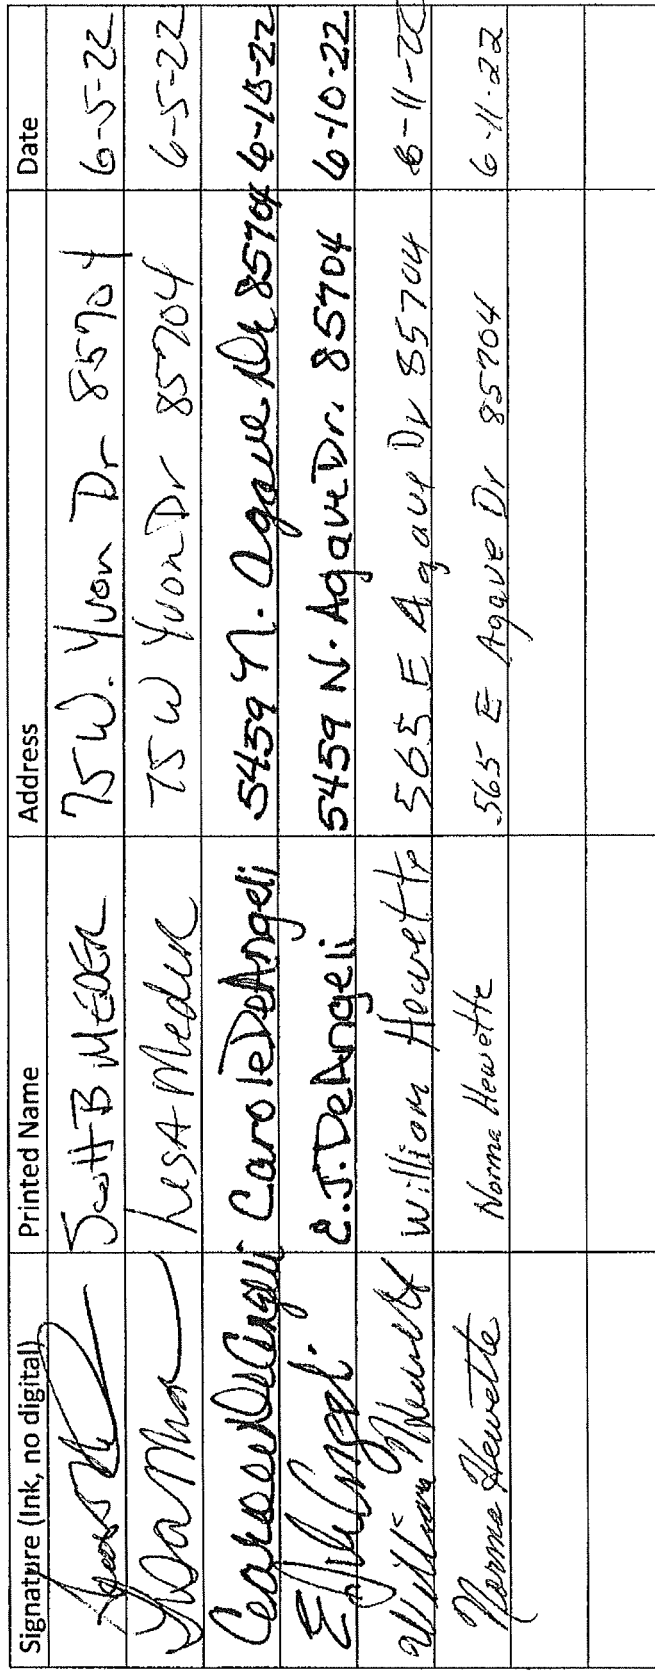 Signature (Ink, no digital) Printed Name Address Date
Scott B MEDER 75 W. Yvon Dr 85704 6-5-22
LesA Meder 75 W Yvon Dr 85704 6-5-22
Carole DeAngeli Carole DeAngeli 5459 N. Agave Dr 85704 6-10-22
E. J. DeAngeli E.J. DeAngeli 5459 N. Agave Dr. 85704 6-10-22
William Hewette William Hewette 565 E Agave Dr 85704 6-11-22
Norma Hewette Norma Hewette 565 E Agave Dr 85704 6-11-22